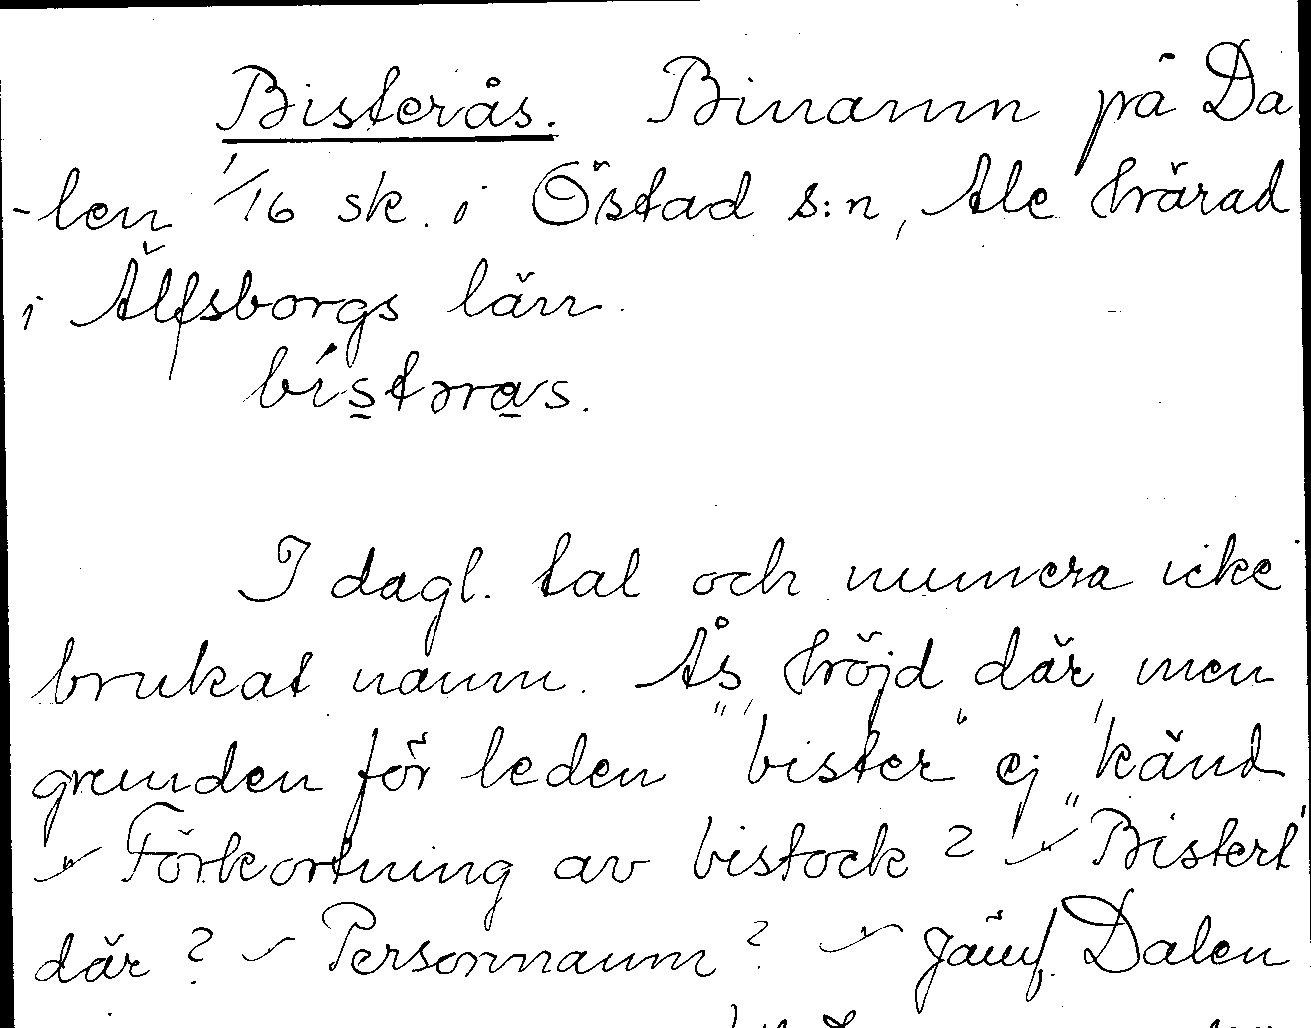 Bisterås. Binamn på Da
-len 1/16 sk. i Östad s:n, Ale härad
i Älfsborgs län.
bístəras.
I dagl. tal och numera icke
brukat namn. Ås, höjd där, men
grunden för leden "bister" ej känd
- Förkortning av bistock? - "Bistert"
där? - Personnamn? - Jämf. Dalen